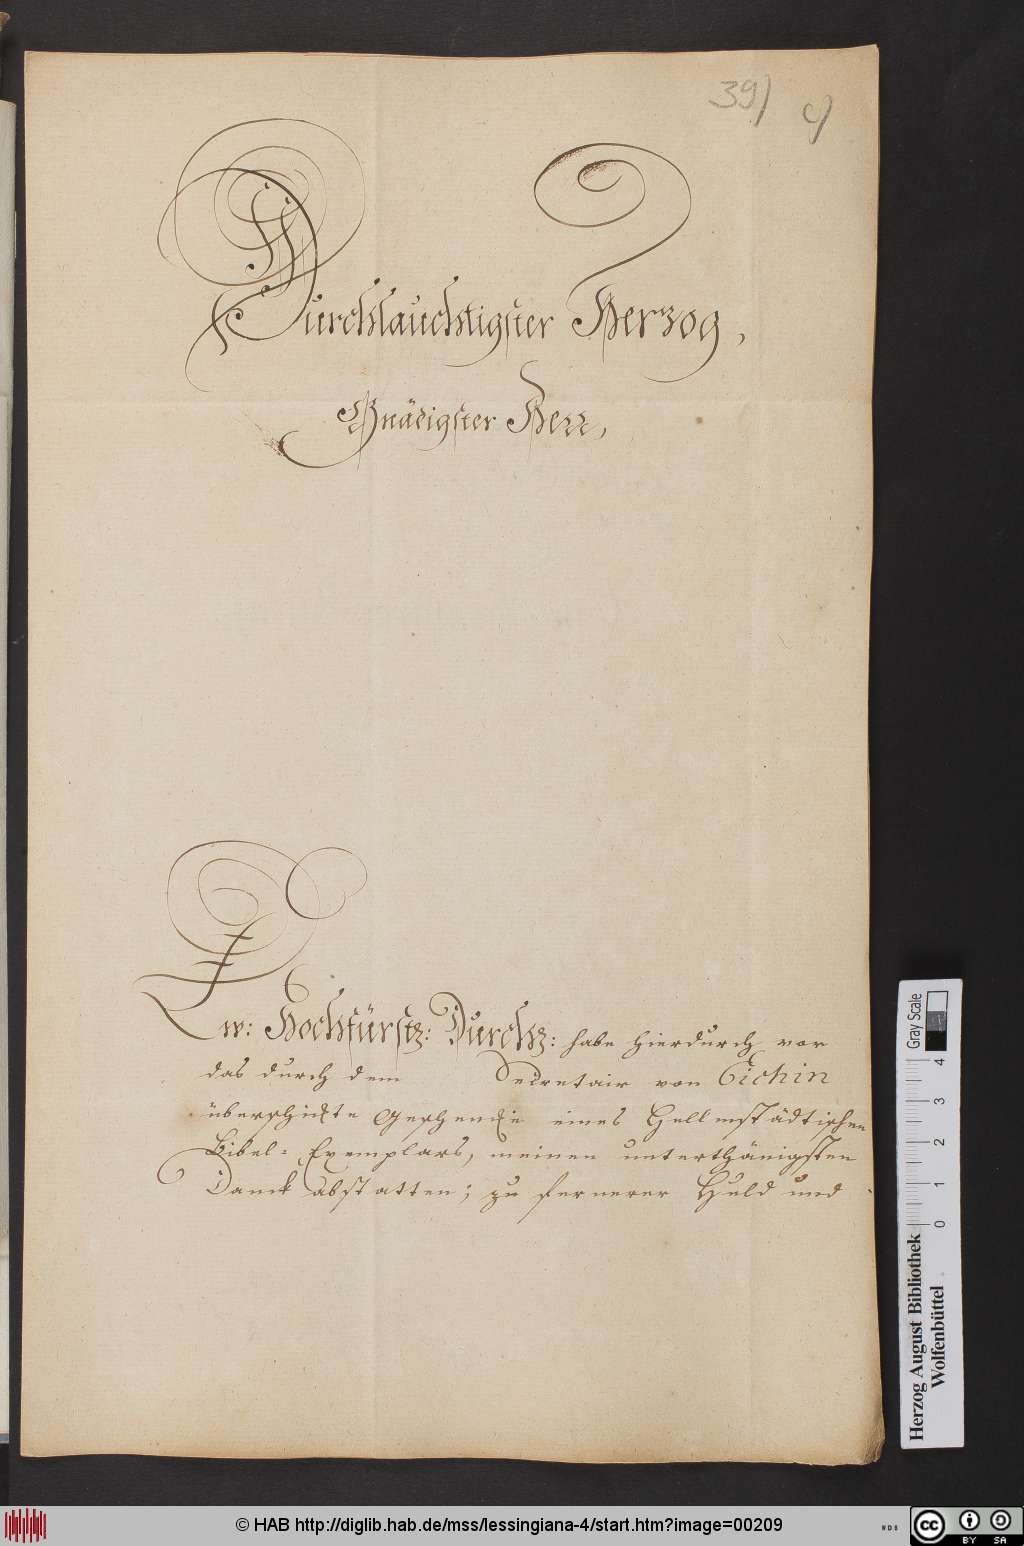 39) c)
Durchlauchtigster Herzog,
Gnädigster Herr,
Ew: Hochfürstl: Durchl: habe hierdurch vor
das durch dem Secretair von Eichin
überschickte Geschencke eines Hellmstädtischen
Bibel-Exemplars, meinen unterthänigsten
Danck abstatten; zu fernerer Huld und
Gray Scale
0 1 2 3 4
Herzog August Bibliothek
Wolfenbüttel
© HAB http://diglib.hab.de/mss/lessingiana-4/start.htm?image=00209
WDB
cc BY SA